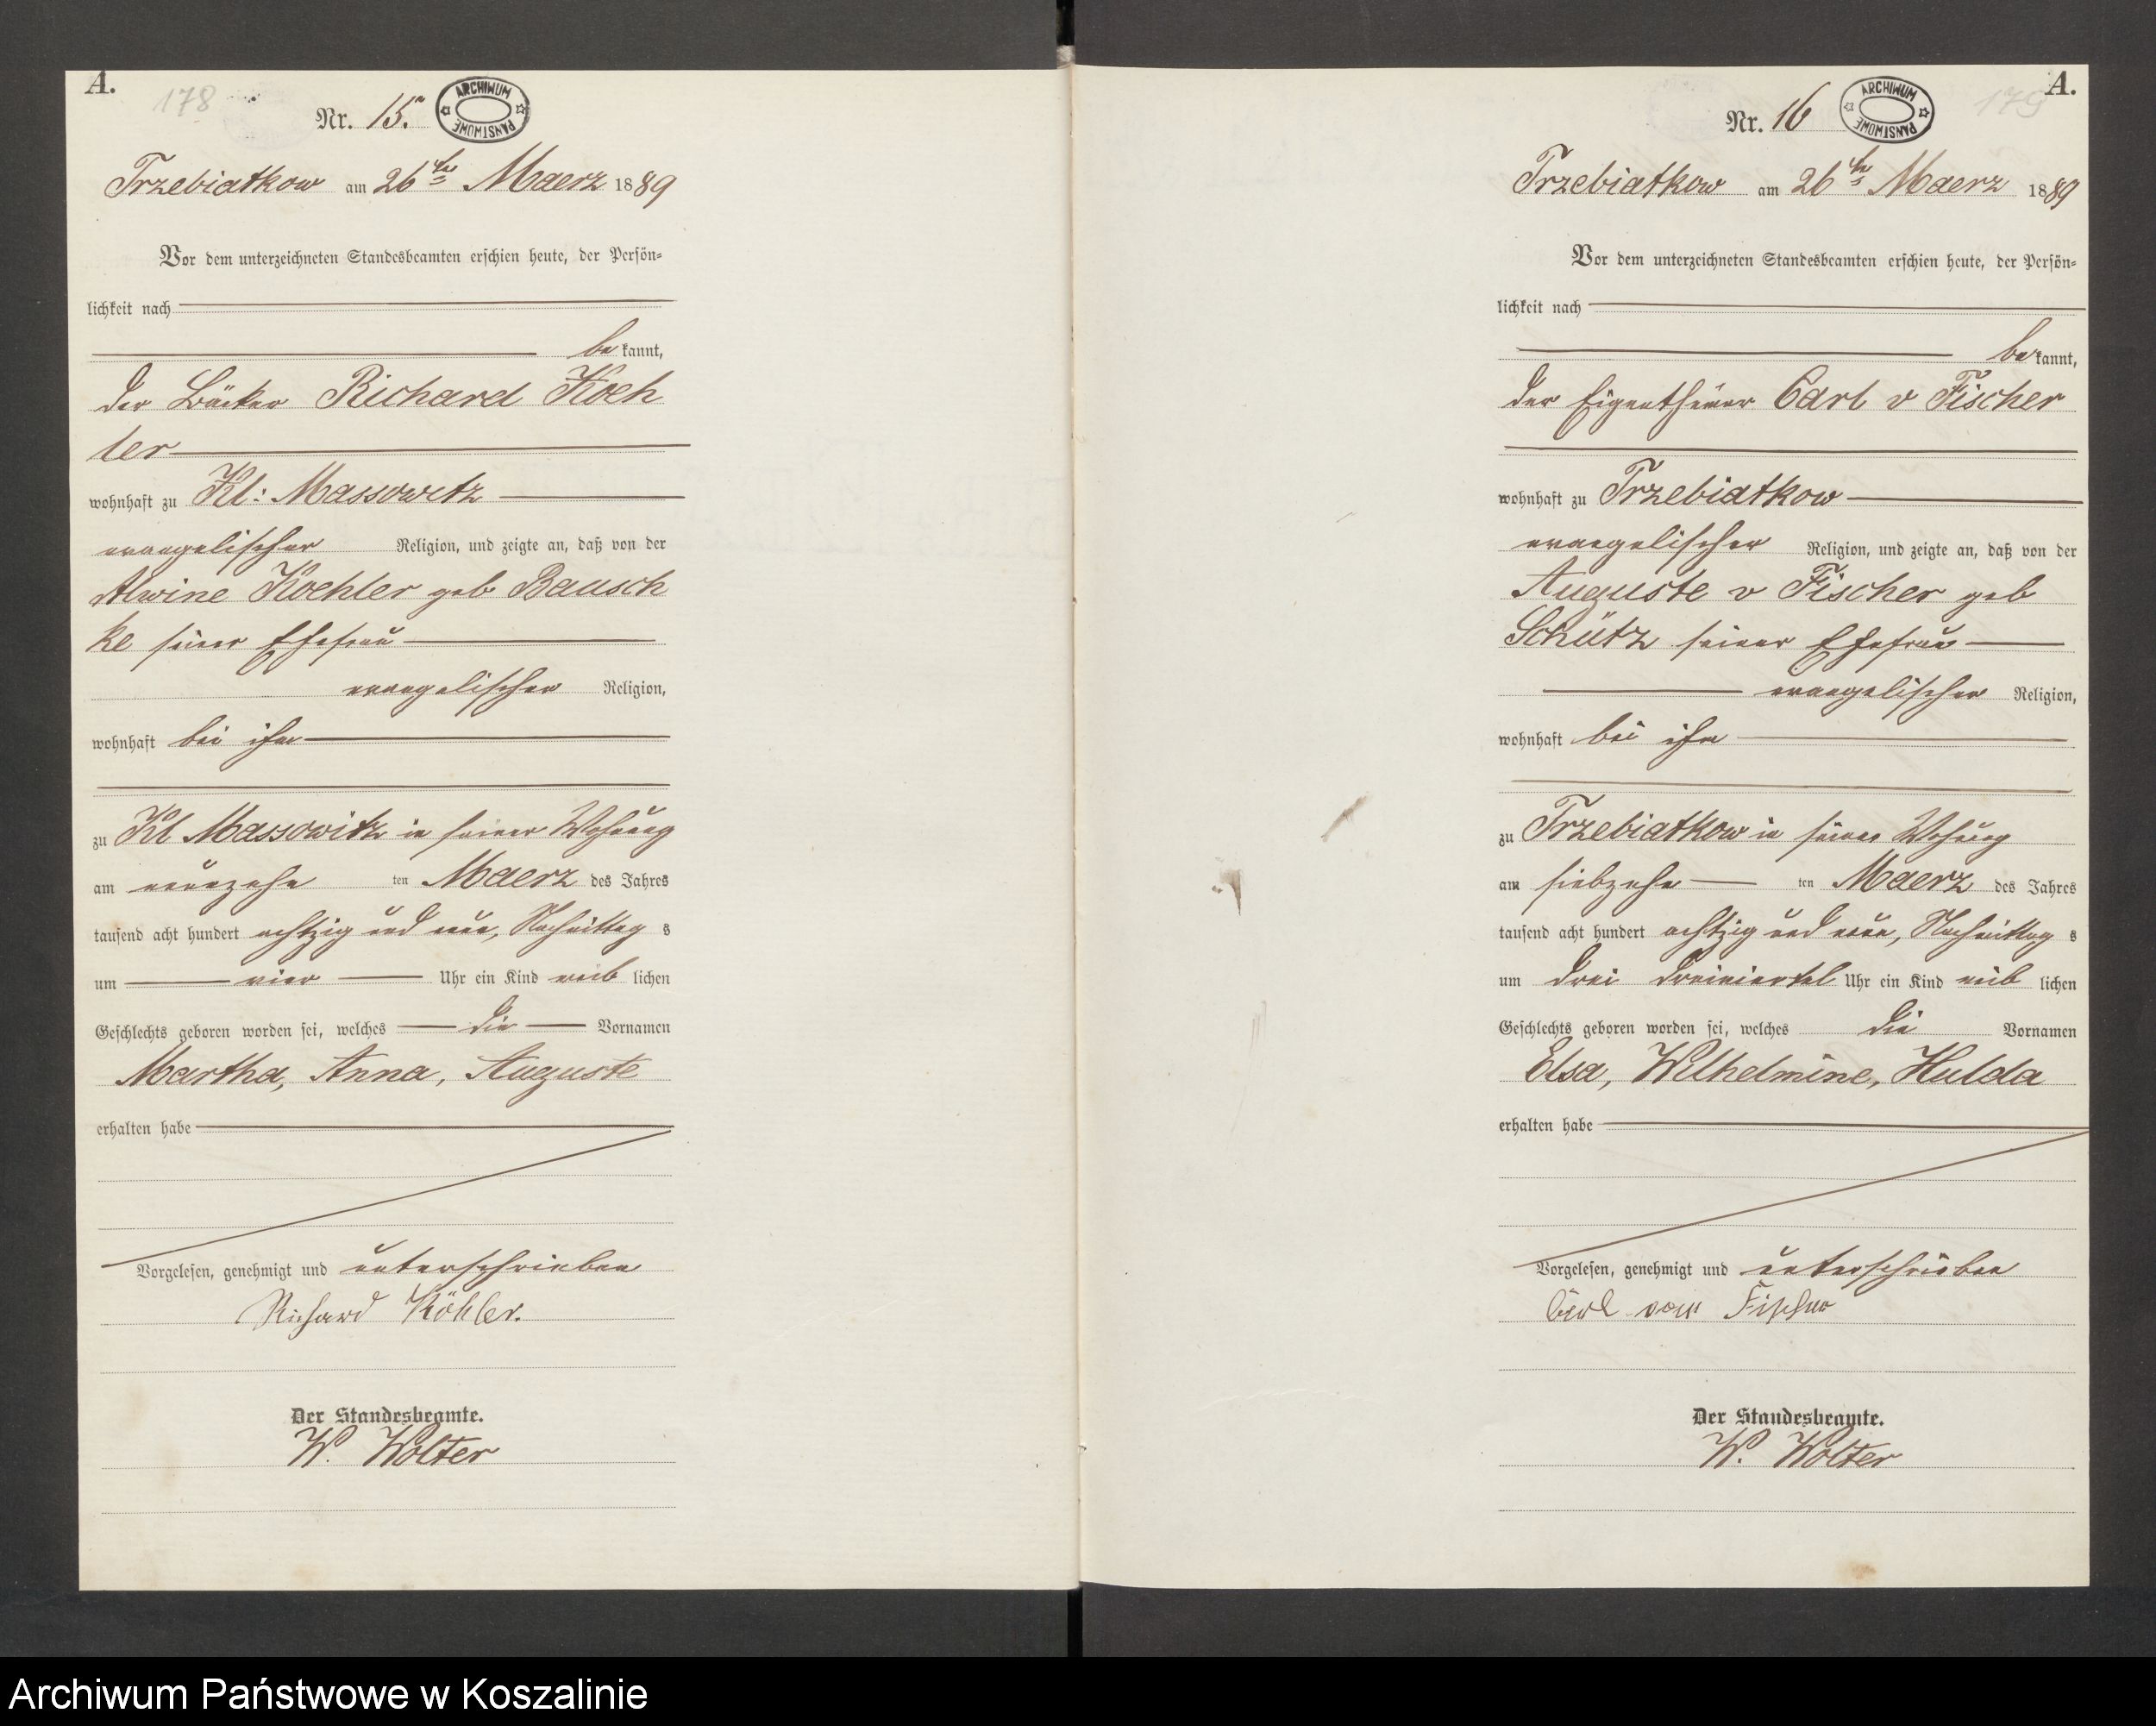 A.
178
Nr. 15.
ARCHIWUM PAŃSTWOWE
Trzebiatkow am 26ten Maerz 1889
Vor dem unterzeichneten Standesbeamten erschien heute, der Persön-
lichkeit nach
bekannt,
der Bäcker Richard Koeh
ler
wohnhaft zu Kl: Massowitz
evangelischer Religion, und zeigte an, daß von der
Alwine Koehler geb Bausch
ke seiner Ehefrau
evangelischer Religion,
wohnhaft bei ihm
zu Kl Massowitz in seiner Wohnung
am neunzehn ten Maerz des Jahres
tausend acht hundert achtzig und neun, Nachmittag s
um vier Uhr ein Kind weib lichen
Geschlechts geboren worden sei, welches die Vornamen
Martha, Anna, Auguste
erhalten habe
Vorgelesen, genehmigt und unterschrieben
Richard Köhler.
Der Standesbeamte.
W. Wolter
A.
179
Nr. 16
ARCHIWUM PAŃSTWOWE
Trzebiatkow am 26ten Maerz 1889
Vor dem unterzeichneten Standesbeamten erschien heute, der Persön-
lichkeit nach
bekannt,
der Eigenthümer Carl v Fischer
wohnhaft zu Trzebiatkow
evangelischer Religion, und zeigte an, daß von der
Auguste v Fischer geb
Schütz seiner Ehefrau
evangelischer Religion,
wohnhaft bei ihm
zu Trzebiatkow in seiner Wohnung
am siebzehn ten Maerz des Jahres
tausend acht hundert achtzig und neun, Nachmittag s
um drei dreiviertel Uhr ein Kind weib lichen
Geschlechts geboren worden sei, welches die Vornamen
Elsa, Wilhelmine, Hulda
erhalten habe
Vorgelesen, genehmigt und unterschrieben
Carl von Fischer
Der Standesbeamte.
W. Wolter
Archiwum Państwowe w Koszalinie